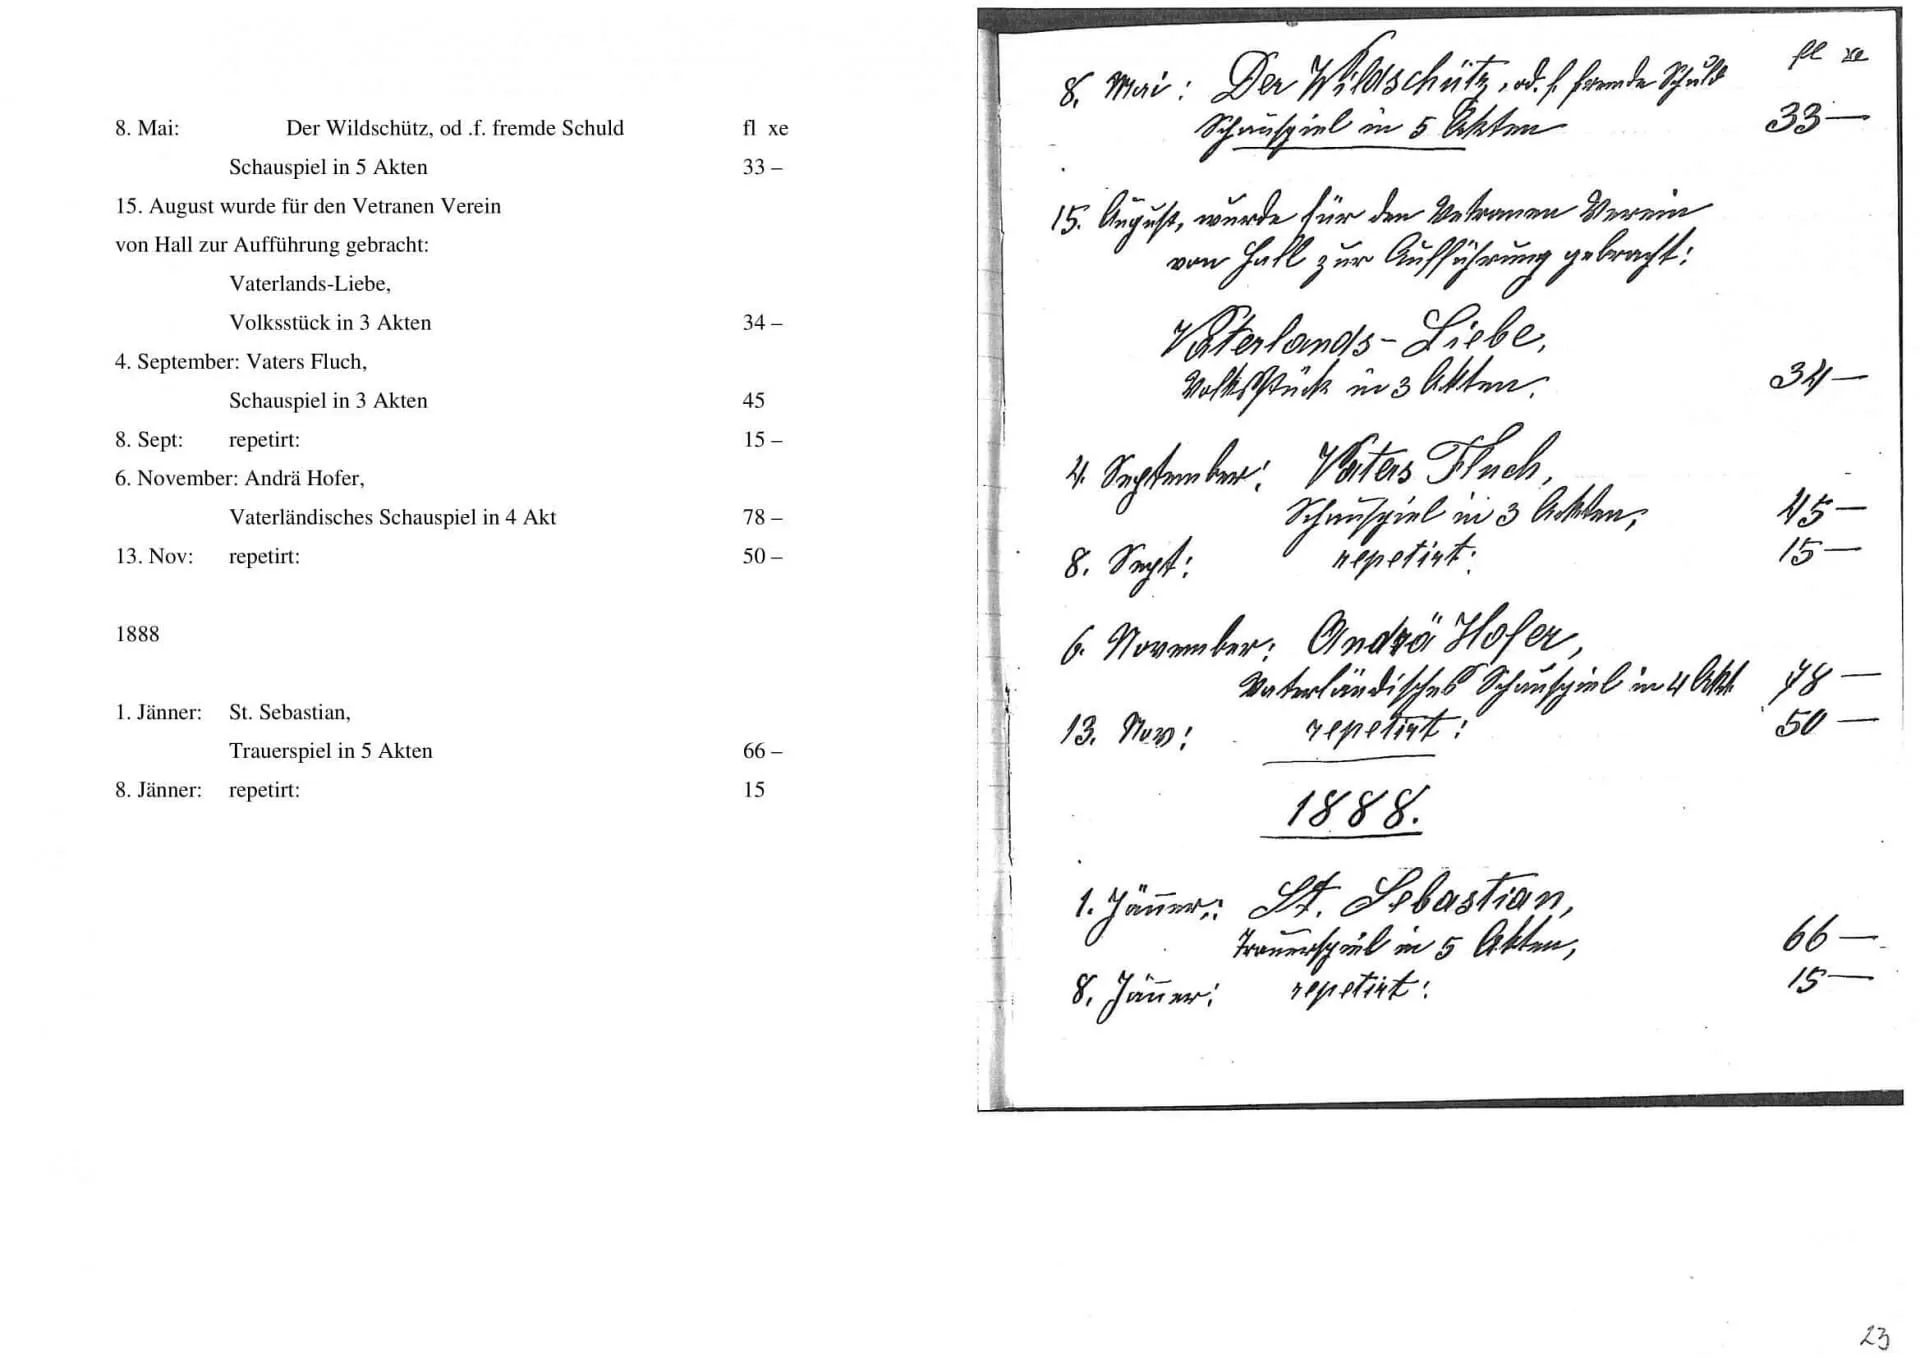 8. Mai: Der Wildschütz, od .f. fremde Schuld fl xe
Schauspiel in 5 Akten 33 –
15. August wurde für den Vetranen Verein
von Hall zur Aufführung gebracht:
Vaterlands-Liebe,
Volksstück in 3 Akten 34 –
4. September: Vaters Fluch,
Schauspiel in 3 Akten 45
8. Sept: repetirt: 15 –
6. November: Andrä Hofer,
Vaterländisches Schauspiel in 4 Akt 78 –
13. Nov: repetirt: 50 –
1888
1. Jänner: St. Sebastian,
Trauerspiel in 5 Akten 66 –
8. Jänner: repetirt: 15
fl xe
8. Mai: Der Wildschütz, od. f. fremde Schuld
Schauspiel in 5 Akten 33 —
15. August, wurde für den Vetranen Verein
von Hall zur Aufführung gebracht:
Vaterlands-Liebe,
Volksstück in 3 Akten. 34 —
4. September: Vaters Fluch,
Schauspiel in 3 Akten, 45 —
8. Sept: repetirt: 15 —
6. November: Andrä Hofer,
Vaterländisches Schauspiel in 4 Akt. 78 —
13. Nov: repetirt: 50 —
1888.
1. Jän̄er: St. Sebastian,
Trauerspiel in 5 Akten, 66 —
8. Jän̄er: repetirt: 15 —
23